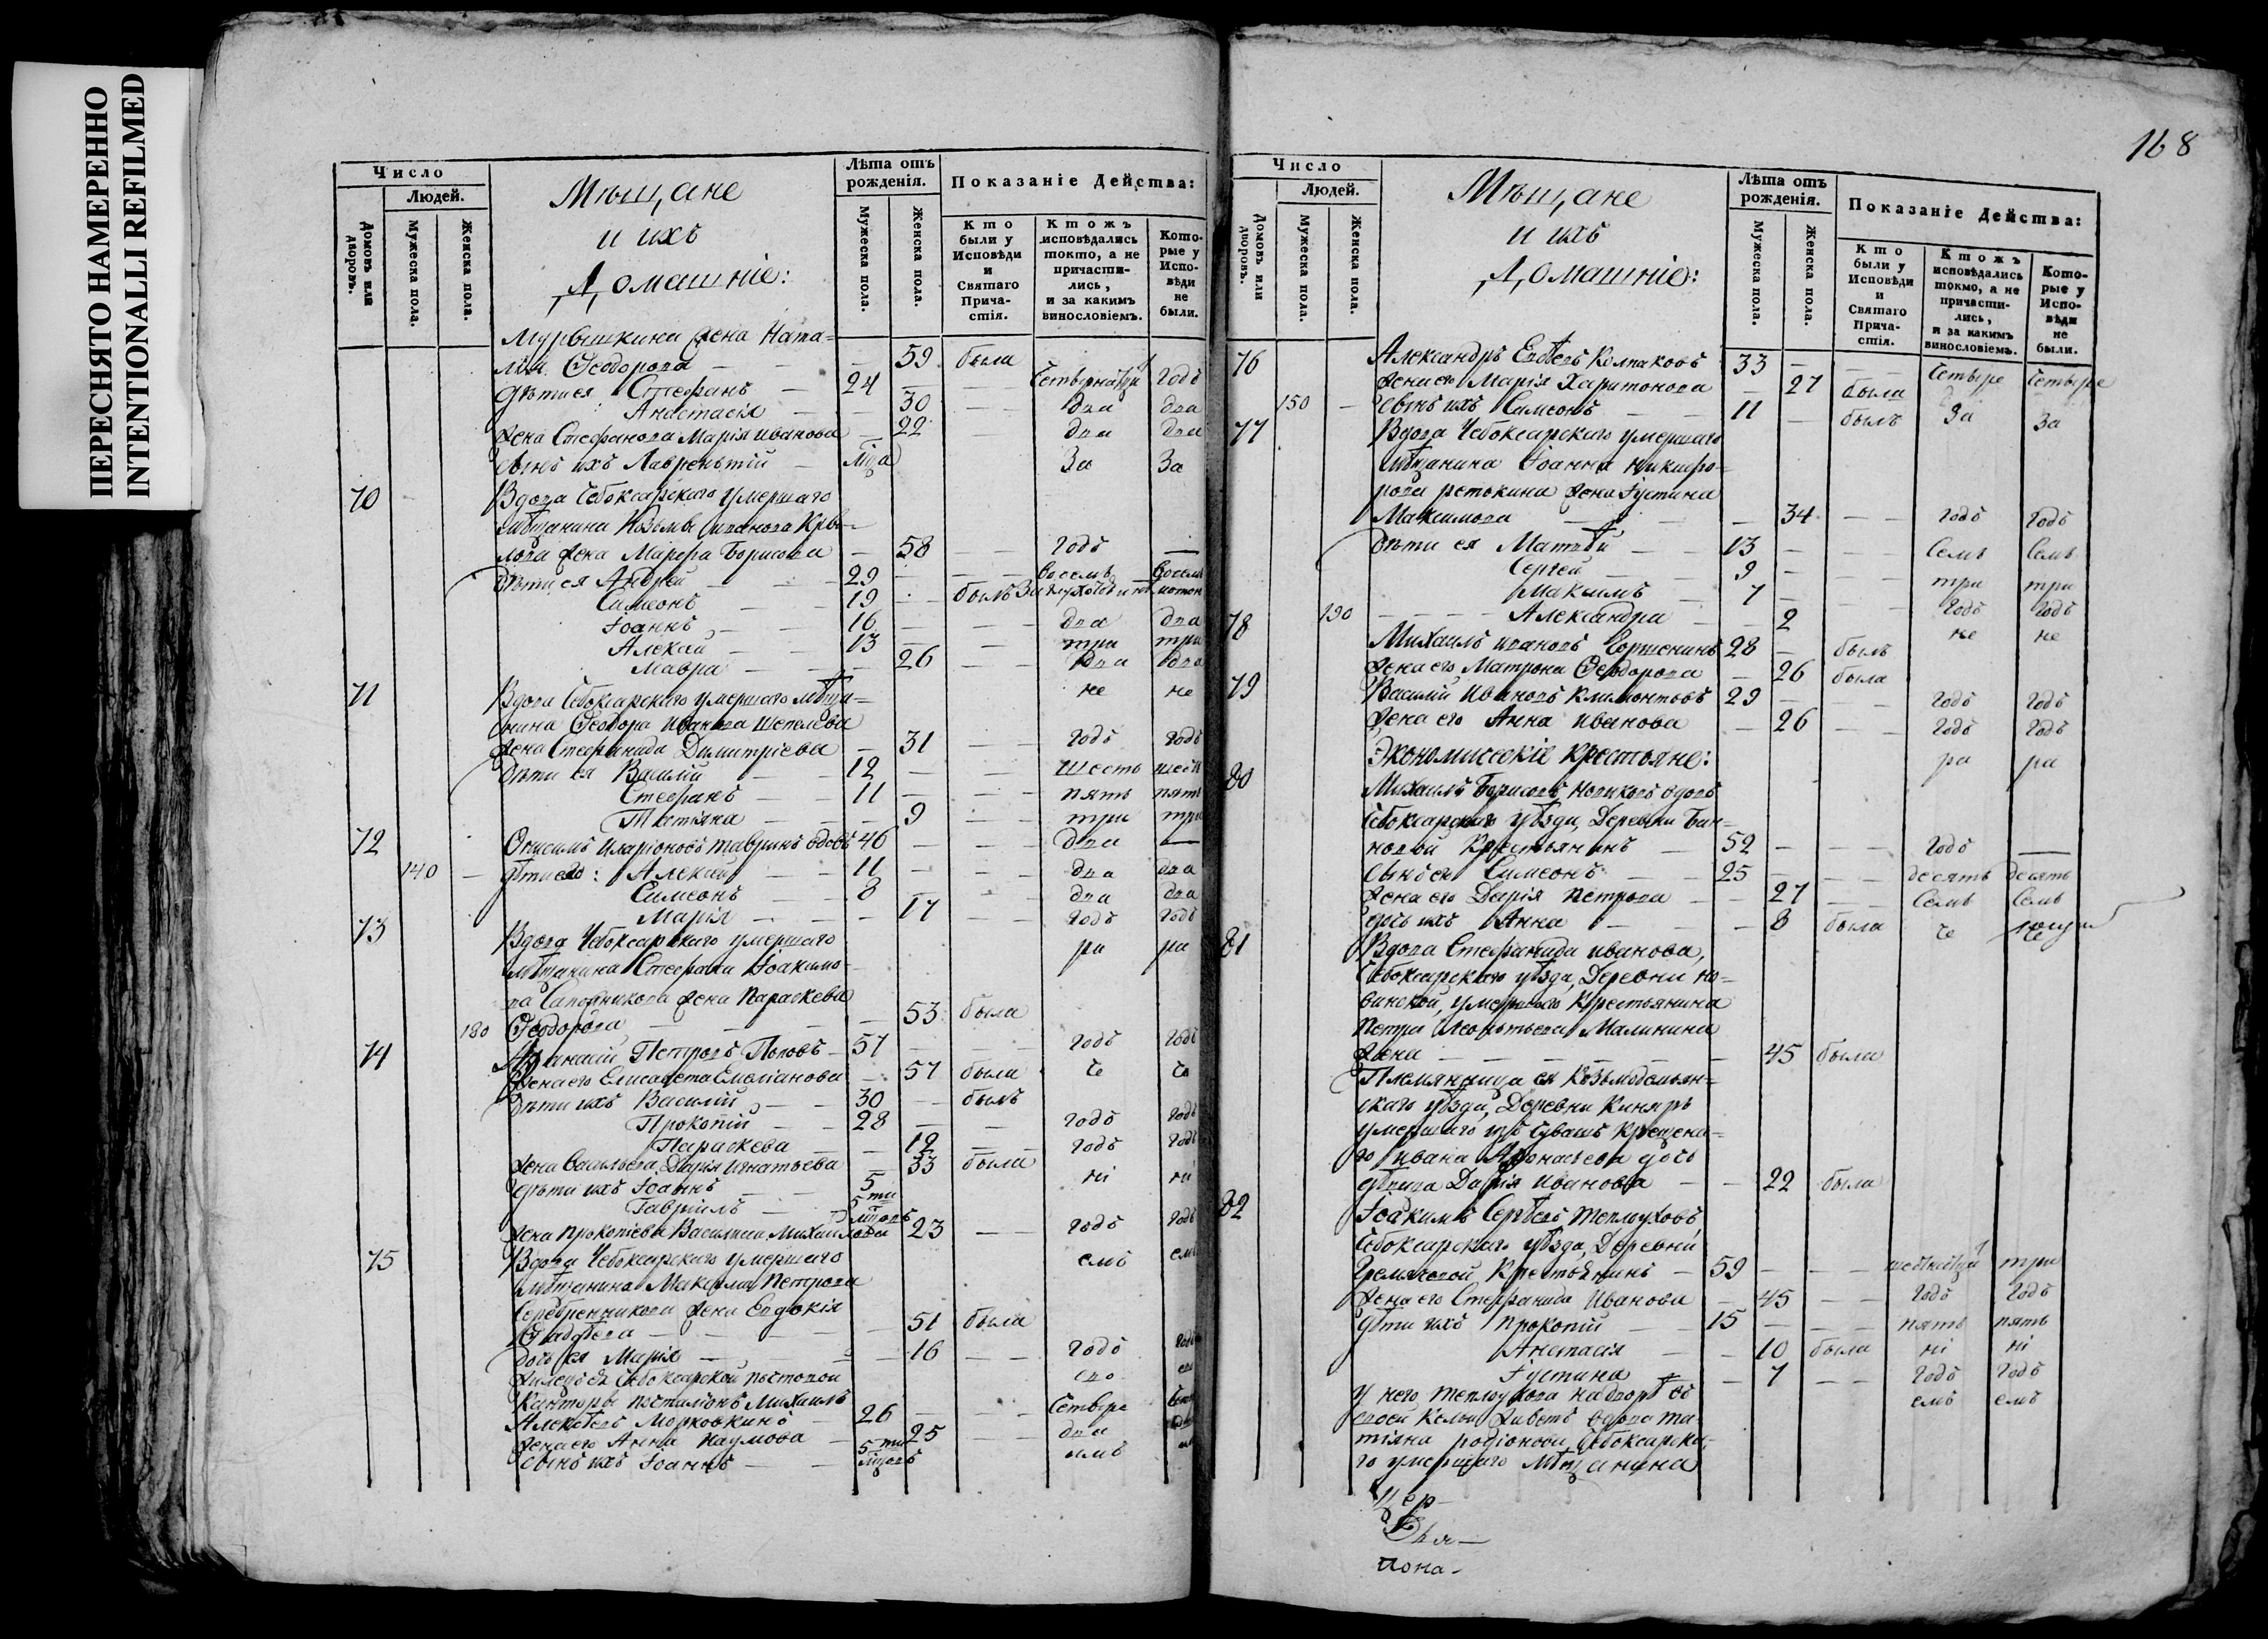 ПЕРЕСНЯТО НАМЕРЕННО
INTENTIONALLI REFILMED
Число
Людей.
Домовъ или дворовъ.
Мужеска пола.
Женска пола.
Мѣщане
и ихъ
Домашніе:
Лѣта отъ рожденія.
Мужеска пола.
Женска пола.
Показаніе Действа:
Кто были у Исповѣди и Святаго Причастія.
Ктожъ исповѣдались токто, а не причастились, и за какимъ винословіемъ.
Которые у Исповѣди не были.
жена Ната=
лія Ѳеодорова — 59 была
дѣти ея Стефанъ — 24 годъ
Анастасія — 30 два два
жена Стефанова Марія Иванова — 22 два два
сынъ ихъ Лаврентій — За За
70 Вдова Чебоксарскаго умершаго
мѣщанина Козьмы Иванова Кры=
лова жена Марѳа Борисова — 58 годъ —
дѣти ея Андрей — 29 восемь восемь
Симеонъ — 19 былъ
Іоаннъ — 16 два два
Алексій — 13 три три
Мавра — 26 два два
71 Вдова Чебоксарскаго умершаго мѣща= не не
нина Ѳеодора Иванова Шепелева
жена Стефанида Димитріева — 31 годъ годъ
дѣти ея Василій — 12 шесть шесть
Стефанъ — 11 пять пять
Татіяна — 9 три три
72 Онисимъ Иларіоновъ Тавринъ вдовъ 46 два —
140 — дѣти его: Алексій — 11 два два
Симеонъ — 8 два два
Марія — 17 годъ годъ
73 Вдова Чебоксарскаго умершаго ра ра
мѣщанина Стефана Іоакимо=
ва Сапожникова жена Параскева
180 Ѳеодорова — 53 была
74 Афанасій Петровъ Поповъ — 57 годъ годъ
жена его Елисавета Емеліанова — 57 была че че
дѣти ихъ Василій — 30 былъ
Прокопій — 28 годъ годъ
Параскева — 12 годъ годъ
жена Васильева Дарія Игнатьева — 33 была ні ні
дѣти ихъ Іоаннъ — 5
Гавріилъ — 5ти
жена Прокопіева Василиса Михайлова 23 годъ годъ
75 Вдова Чебоксарскаго умершаго емъ емъ
мѣщанина Максима Петрова
Серебренникова жена Евдокія
— 51 была
дочь ея Марія — 16 годъ
Чебоксарской почтовой его
Конторы почталіонъ Михаилъ четыре
Алексѣевъ Морковкинъ — 26
жена его Анна Наумова — 25 два
сынъ ихъ Іоаннъ — 5ти имъ
168
Число
Людей.
Домовъ или дворовъ.
Мужеска пола.
Женска пола.
Мѣщане
и ихъ
Домашніе:
Лѣта отъ рожденія.
Мужеска пола.
Женска пола.
Показаніе Действа:
Кто были у Исповѣди и Святаго Причастія.
Ктожъ исповѣдались токмо, а не причастились, и за какимъ винословіемъ.
Которые у Исповѣди не были.
76 Александръ Колпаковъ 33 — четыре четыре
жена его Марія Харитонова — 27 была
150 — сынъ ихъ Симеонъ — 11 — былъ За За
77 Вдова Чебоксарскаго умершаго
мѣщанина Іоанна Никифо=
рова жена Іустина
Максимова — 34 годъ годъ
дѣти ея Матвѣй — 13 семь семь
Сергей — 9 три три
Максимъ — 7 годъ годъ
190 Александра — 2 не не
78 Михаилъ Ивановъ 28 — былъ
жена его Матрона Ѳеодорова — 26 была
79 Василій Ивановъ Климонтовъ 29 годъ годъ
жена его Анна Иванова — 26 годъ годъ
Экономическіе крестьяне: ра ра
80 Михаилъ Борисовъ Новиковъ вдовъ
Чебоксарскаго уѣзда, Деревни Бан=
новой Крестьянинъ — 52 годъ —
сынъ его Симеонъ — 25 десять десять
жена его Дарія Петрова — 27 семь семь
дочь ихъ Анна — 8 была че
81 Вдова Стефанида Иванова,
Чебоксарскаго уѣзда, Деревни Но=
винской, умершаго Крестьянина
Петра Леонтьева Малинина
жена — 45 была
Племянница ея Козьмодемьян=
скаго уѣзда, Деревни Киняръ
умершаго изъ Чувашъ крещена=
го Ивана Афонасьева дочь
дѣвица Дарія Иванова — 22 была
82 Іоакимъ Сергѣевъ Теплоуховъ,
Чебоксарскаго уѣзда, Деревни
Гремячевой Крестьянинъ — 59 три
жена его Стефанида Иванова — 45 годъ годъ
дѣти ихъ Прокопій — 15 пять пять
Анастасія — 10 была ні ні
Іустина — 7 годъ годъ
У него Теплоухова на дворѣ въ емъ емъ
своей кельи живетъ вдова Та=
тіяна Родіонова Чебоксарска=
го умершаго мѣщанина
Цер-
Дья-
пона-